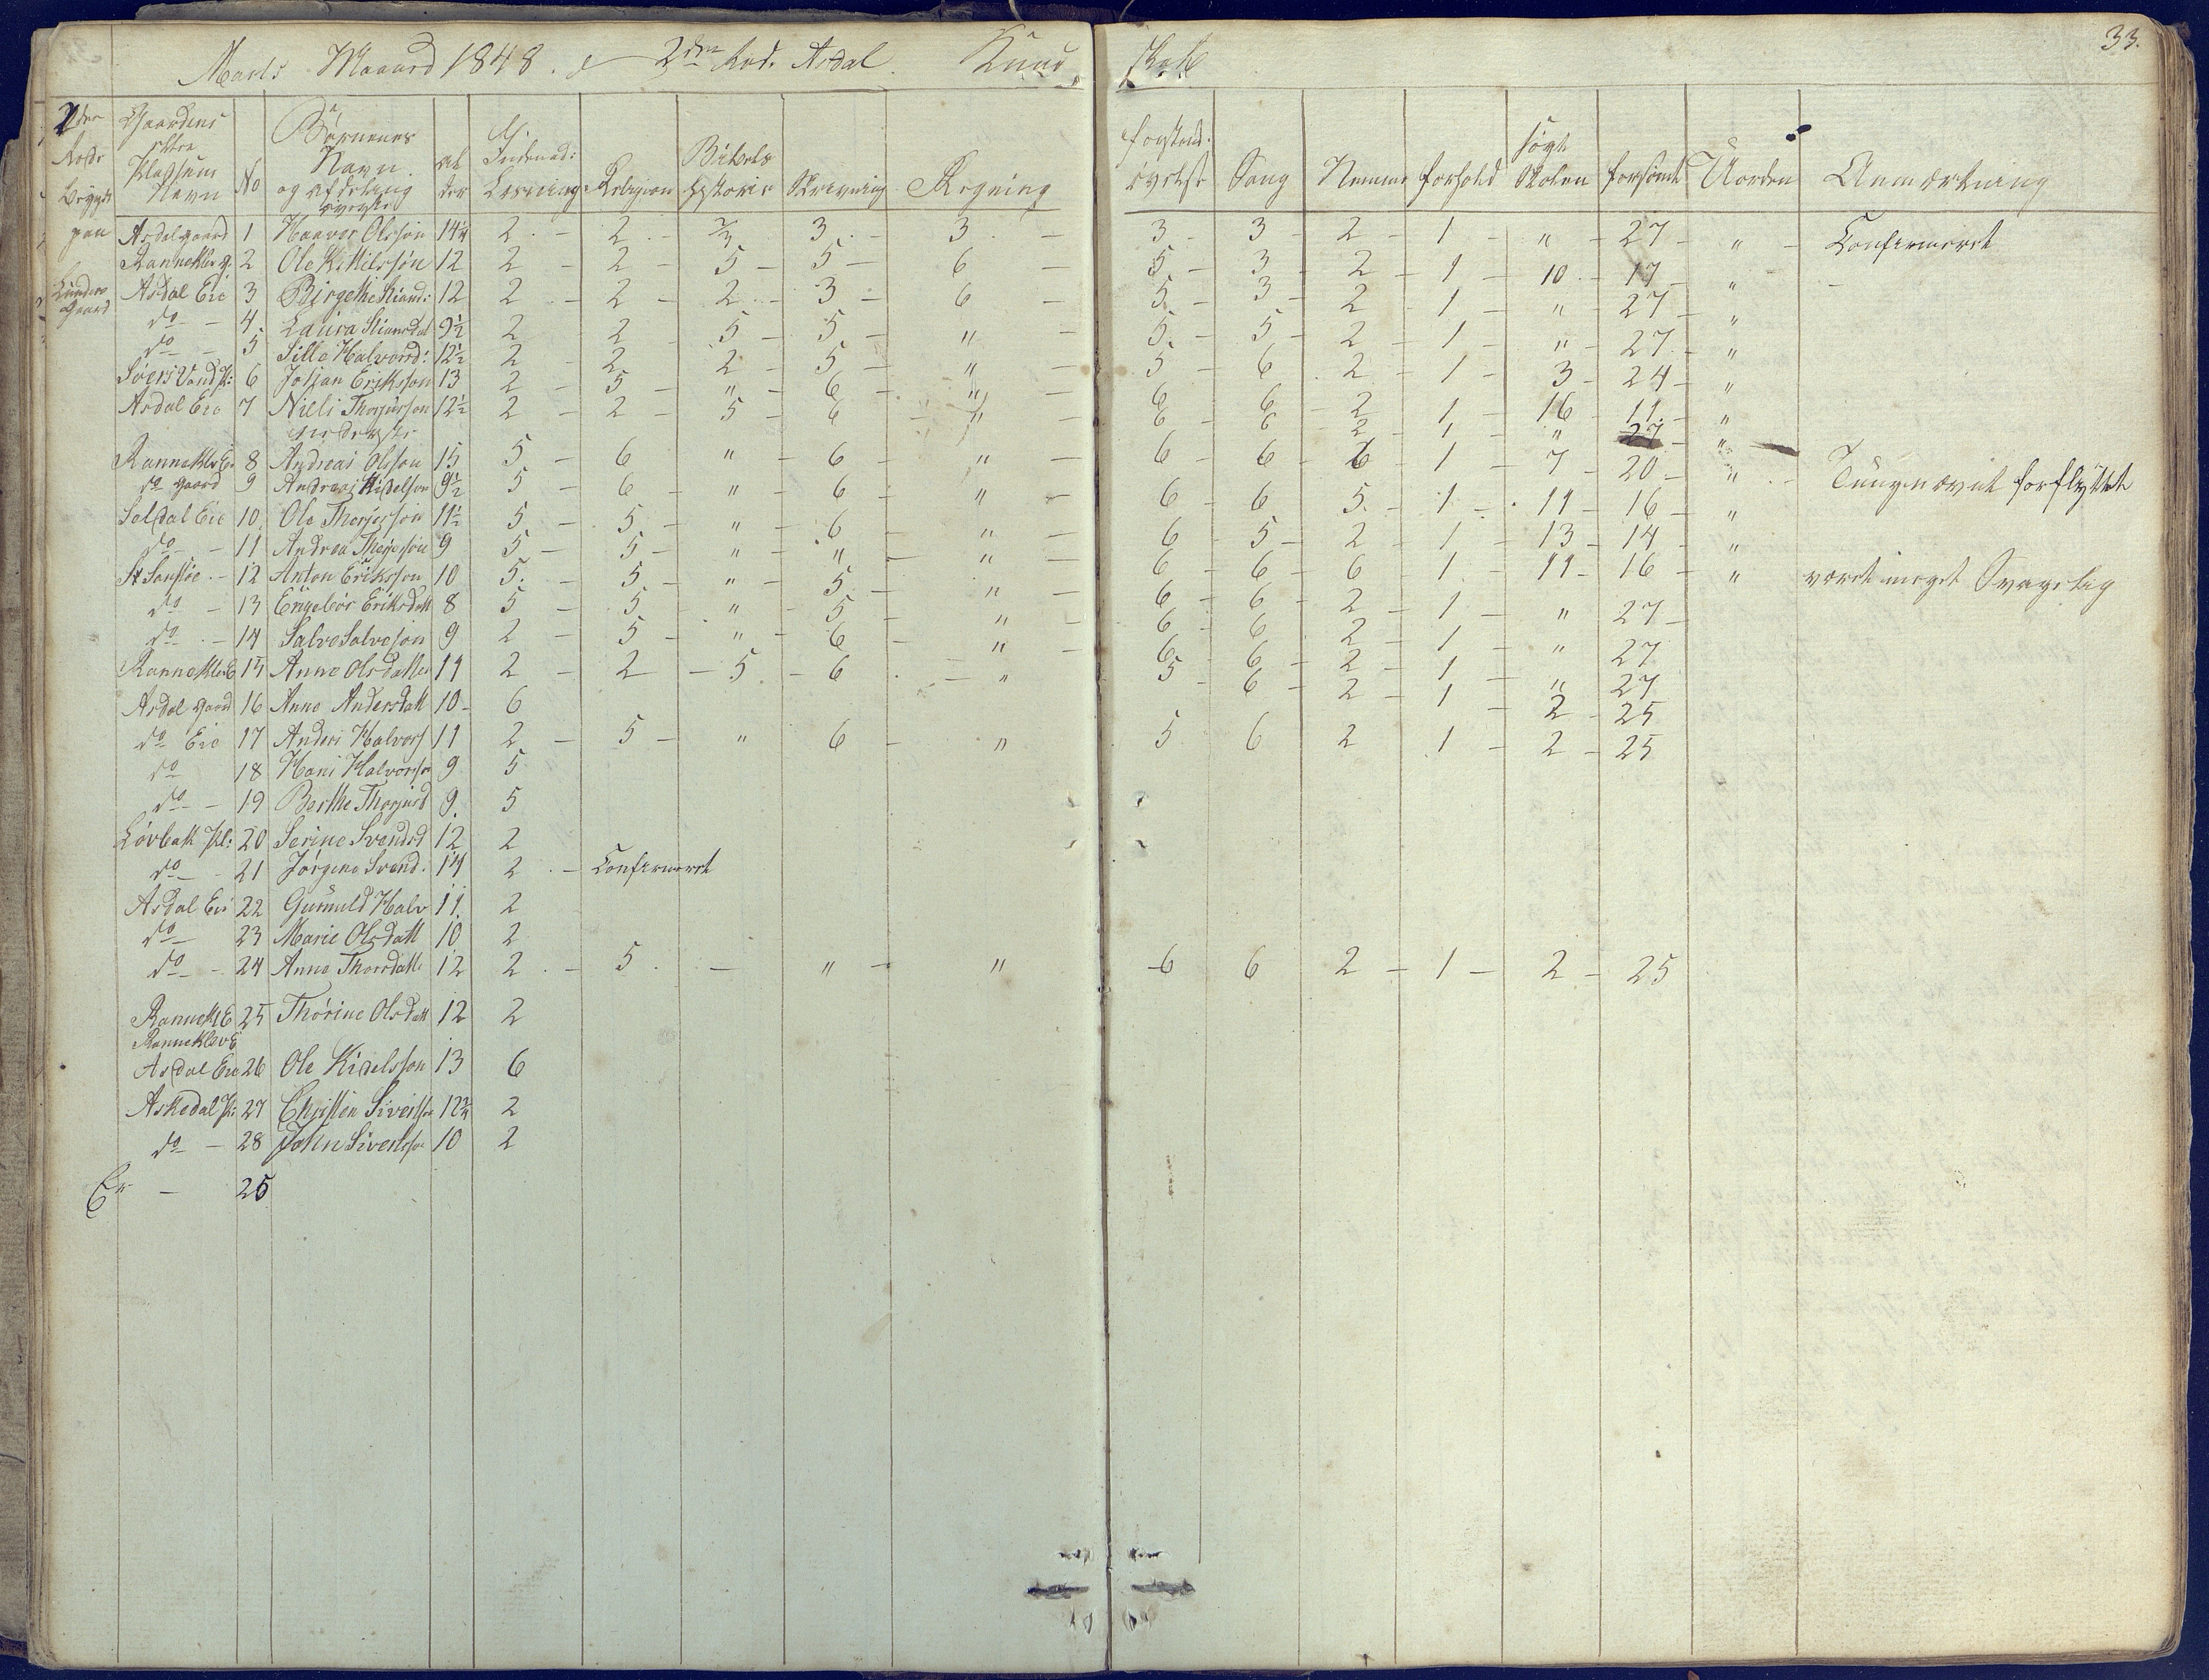 33.
Marts Maaned 1848. 2den Rod. Asdal.
2den Rode
Gaardens eller Pladsens Navn | No | Børnenes Navn og Afdeling øverste | Alder | Indenad: Læsning | Religion | Bibels Historie | Skrivning | Regning | Forstands øvelse | Sang | Nemme | Forhold | søgt Skolen | Forsømt | Uorden | Anmærkning
Asdal gaard 1 Haaver Olsson 14¼ 2 - 2 - 2/3 3 - 3 - 3 - 3 - 2 - 1 - " - 27 - " - Confirmeret
Rannekløv g. 2 Ole Kittilssøn 12 2 - 2 - 5 - 5 - 6 - 5 - 3 - 2 - 1 - 10 - 17 - "
Asdal Eie 3 Birgethe Stiansd: 12 2 - 2 - 2 - 3 - 6 - 5 - 3 - 2 - 1 - " - 27 - "
do - 4 Laura Stiansdat 9½ 2 2 5 - 5 - " - 5 - 5 - 2 - 1 - " - 27 - "
do - 5 Sille Halvorsd: 12½ 2 - 2 2 - 5 - " - 5 - 6 2 - 1 - 3 - 24 - "
Søers Vand Pl: 6 Johan Eriksson 13 2 - 5 - " - 6 - " - 6 6 - 2 1 - 16 - 11 - "
Asdal Eie 7 Niels Thorjusson 12½ 2 - 2 - 5 - 6 - " - 6 - 6 - 2 - 1 - " 27 - "
nederste
Rannekløv Eie 8 Andreas Olsson 15 5 - 6 " - 6 - " - 6 - 6 - 6 1 - 7 - 20 - " - Tungnævnt forflyttet
do gaard 9 Andreas Kidelson 9½ 5 - 6 - " - 6 - " - 6 - 6 5. - 1 - 11 - 16 - "
Seldal Eie 10 Ole Therjesson 11½ 5. - 5 - " - 6 - " - 6 - 5 - 2 - 1 - 13 - 14 - "
do - 11 Andrea Therjesøn 9 5 - 5 - " - " - " - 6 - 6 - 6 - 1 - 11 - 16 - " været meget Svagelig
St Sanstøe - 12 Anton Eriksson 10 5. - 5 - " - 5 - " - 6 - 6 - 2 - 1 - " 27 -
do - 13 Engebør Eriksdatt 8 5 - 5 - " - 5 - " - 6 - 6 2 - 1 - " 27
do - 14 Salve Salveson 9 2 - 5 - " - 6 - " - 6 6 - 2 - 1 - " 27
Rannekløv E 15 Anne Olsdatter 11 2 - 2 - 5 - 6 - " 5 6 - 2 - 1 - 2 - 25
Asdal gaard 16 Anne Andersdatt 10 - 6
do Eie 17 Anders Halvors 11 2 - 5 - " 6 - " 5 6 2 1 - 2 - 25
do 18 Hans Halvorss 9 5
do - 19 Berthe Thorjusd 9 5
Løvbatt Pl: 20 Serine Svendsd 12 2
do - 21 Jørgene Svend. 14 2 - Confirmeret
Asdal Eie 22 Gunuld Halv 11 2
do - 23 Marie Olsdatt 10 2
do - 24 Anne Thorsdatt 12 2 - 5 - " - " 6 6 2 - 1 - 2 - 25
Rannekl E 25 Thorine Olsdatt 12 2
Rannekløv E
Asdal Eie 26 Ole Kidelsson 13 6
Askedal Pl: 27 Christen Siverss 12¾ 2
do - 28 John Siverss 10 2
Er - 25